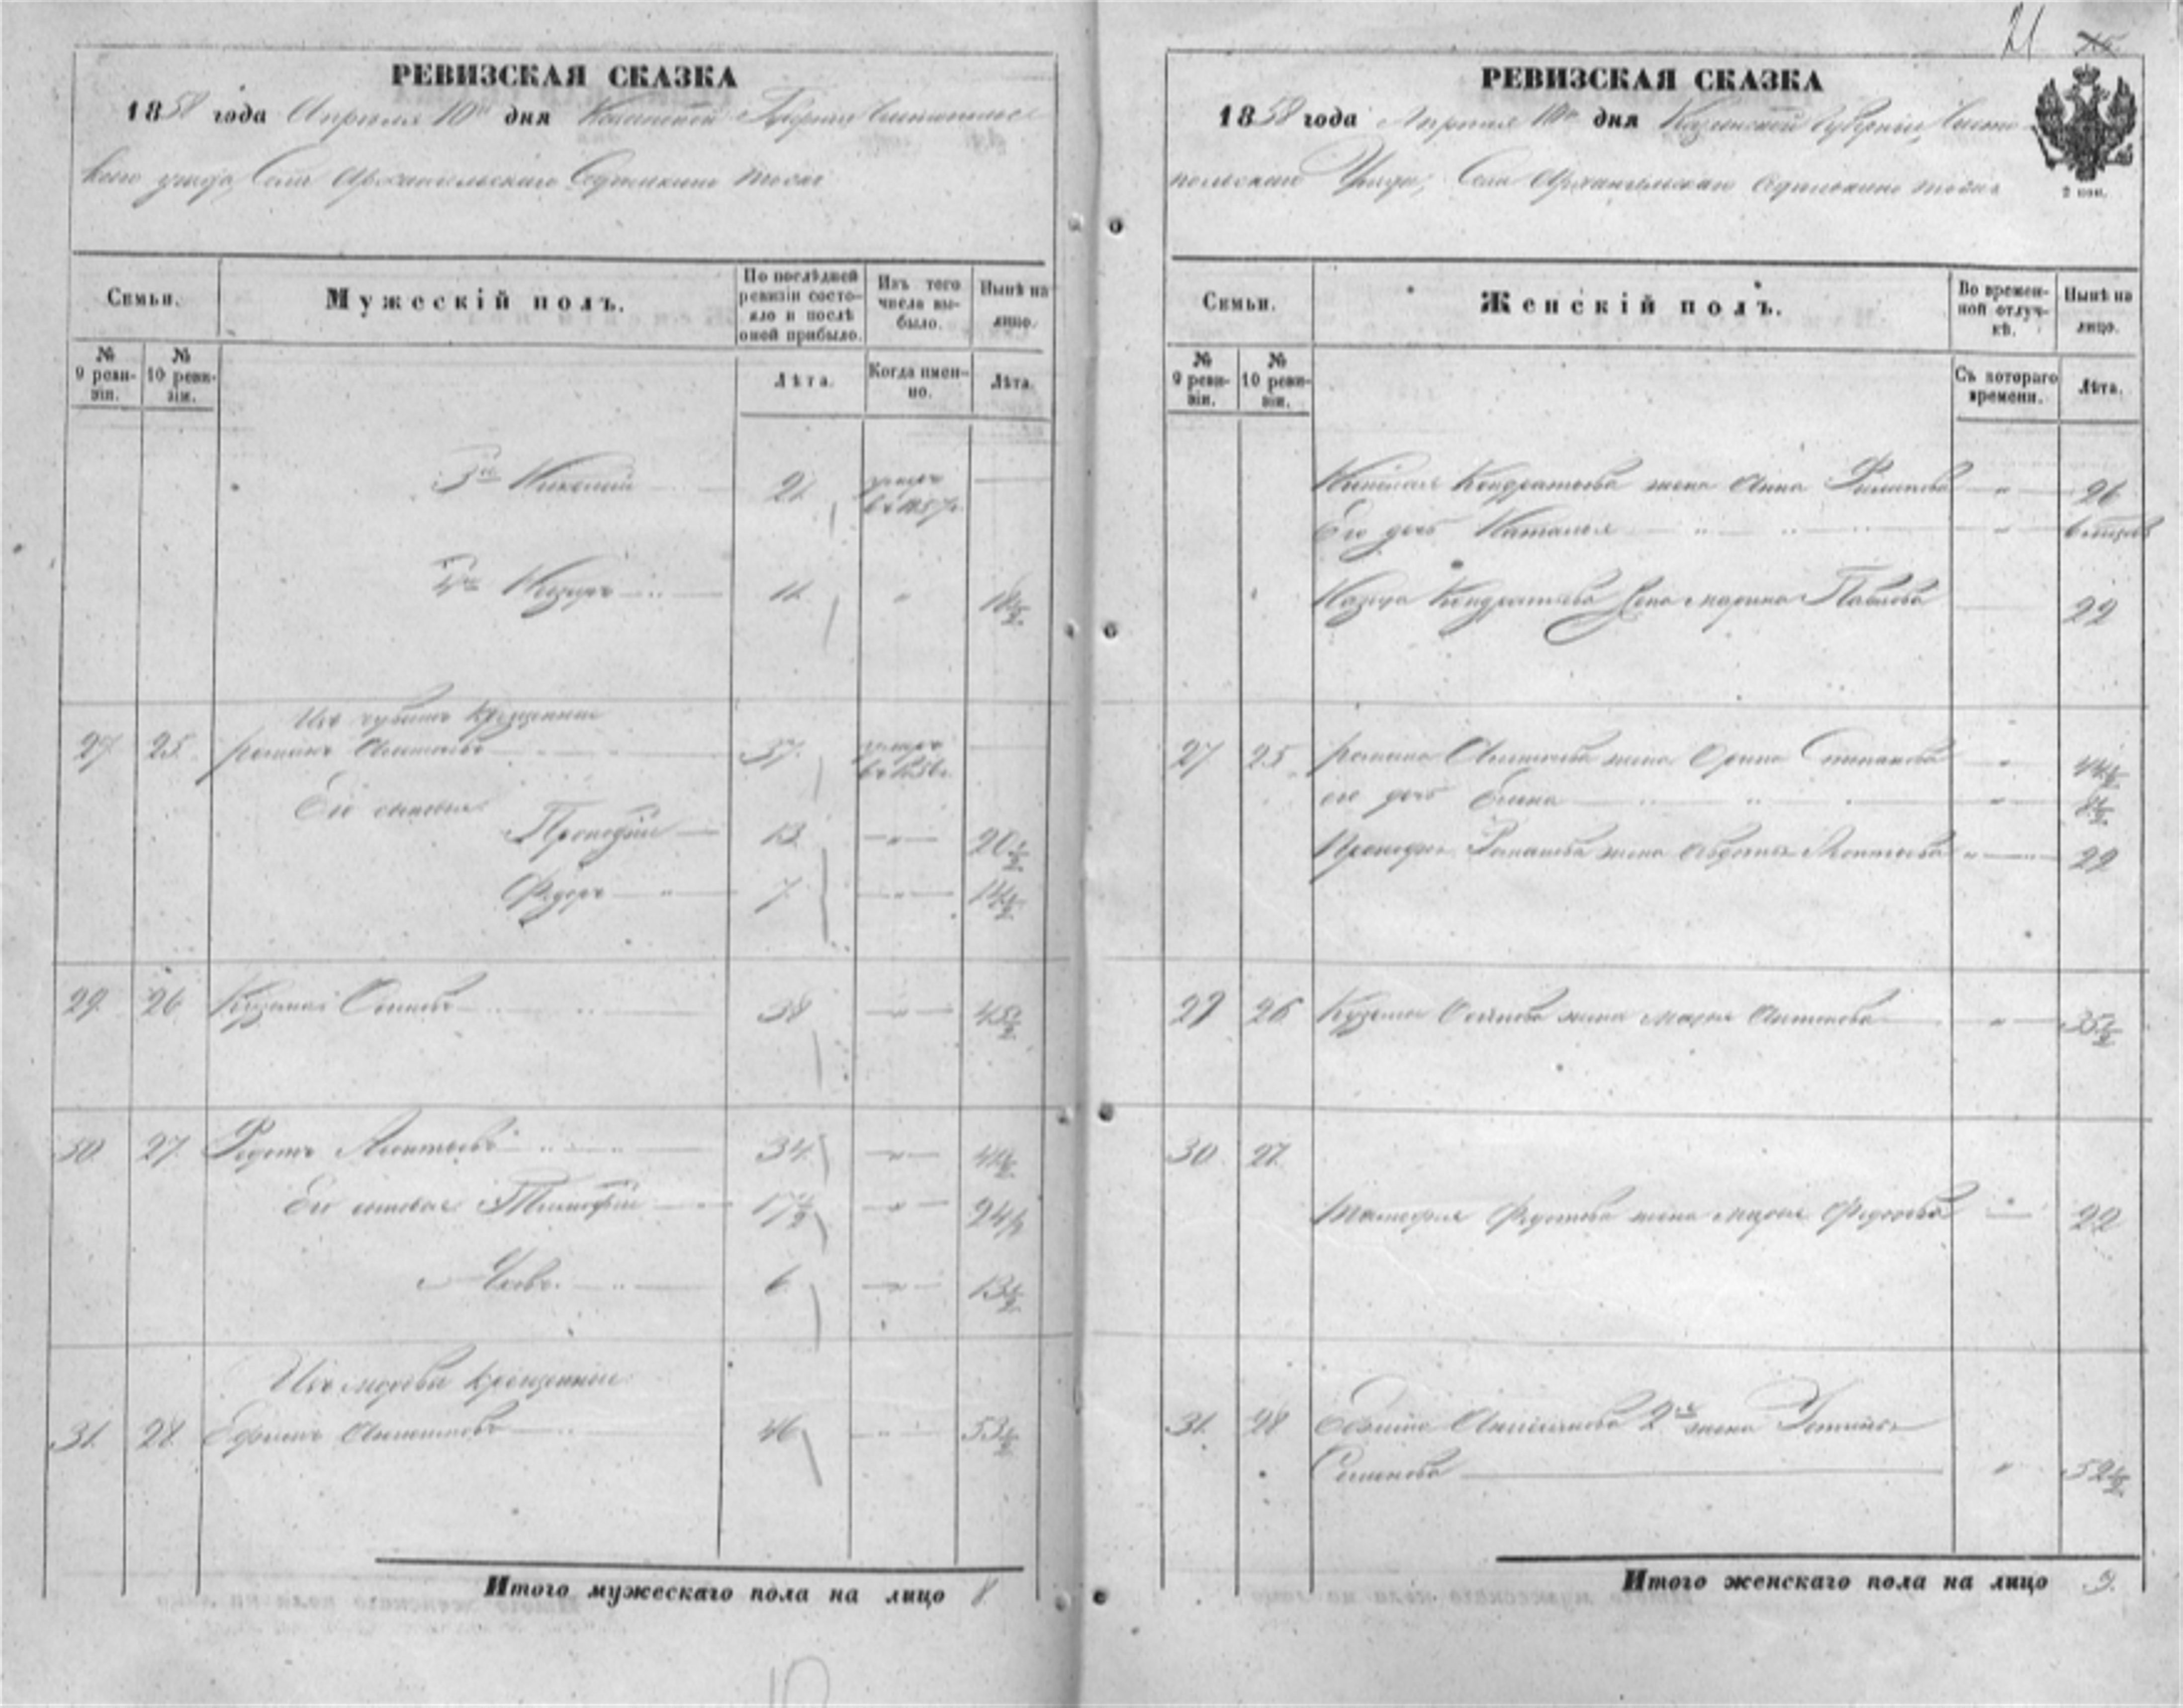 РЕВИЗСКАЯ СКАЗКА
1858 года Апреля 10го дня Казанской Губернии Чистопольс
кого уезда, Села Архангельскаго
Семьи.
Мужескій полъ.
По послѣдней ревизіи состояло и послѣ оной прибыло.
Изъ того числа выбыло.
Нынѣ на лицо.
№ 9 ревизіи.
№ 10 ревизіи.
Лѣта.
Когда именно.
Лѣта.
3й Николай 21 умеръ в 1857г.
4й 11 " 18½
Крещенные
27 25 Романъ 37 умеръ в 1856г.
Его сыновья
Прокофій 13 " 20½
Федоръ 7 " 14½
29. 26 Кузьма Осиповъ 38 " 45½
30. 27 Федотъ Леонтьевъ 34 " 41½
Его сыновья Тимофей 17½ " 24½
Яковъ 6 " 13½
Изъ мордвы крещенные
31. 28 46 " 53½
Итого мужескаго пола на лицо 8
21
РЕВИЗСКАЯ СКАЗКА
1858 года Апреля 10го дня Казанской Губернии, Чисто
польскаго Уезда, Села Архангельскаго
2 коп.
Семьи.
Женскій полъ.
Во временной отлучкѣ.
Нынѣ на лицо.
№ 9 ревизіи.
№ 10 ревизіи.
Съ котораго времени.
Лѣта.
Николая Кондратьева жена Анна Филипова " 26
Его дочь Наталья "
Кондратьева жена Марина Павлова 22
27 25 Романа жена Орина Степанова " 44½
его дочь Елена " 8½
Прокофья Романова жена Авдотья Леонтьева " 22
29 26 Кузьмы Осипова жена Марья Антонова " 35½
30 27
Тимофея Федотова жена Марья Федорова " 22
31. 28 2я жена Устинья
Семенова " 52½
Итого женскаго пола на лицо 9.